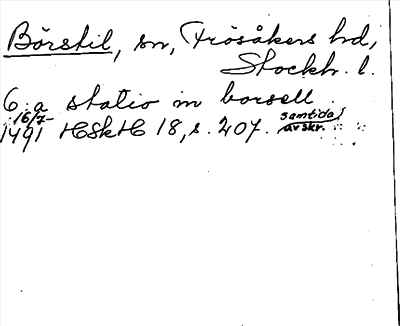 Börstil, sn, Frösåkers hd,
Stockh. l.
6:a statio in borsell
16/7
1491 HSkH 18, s. 207. samtida
avskr.